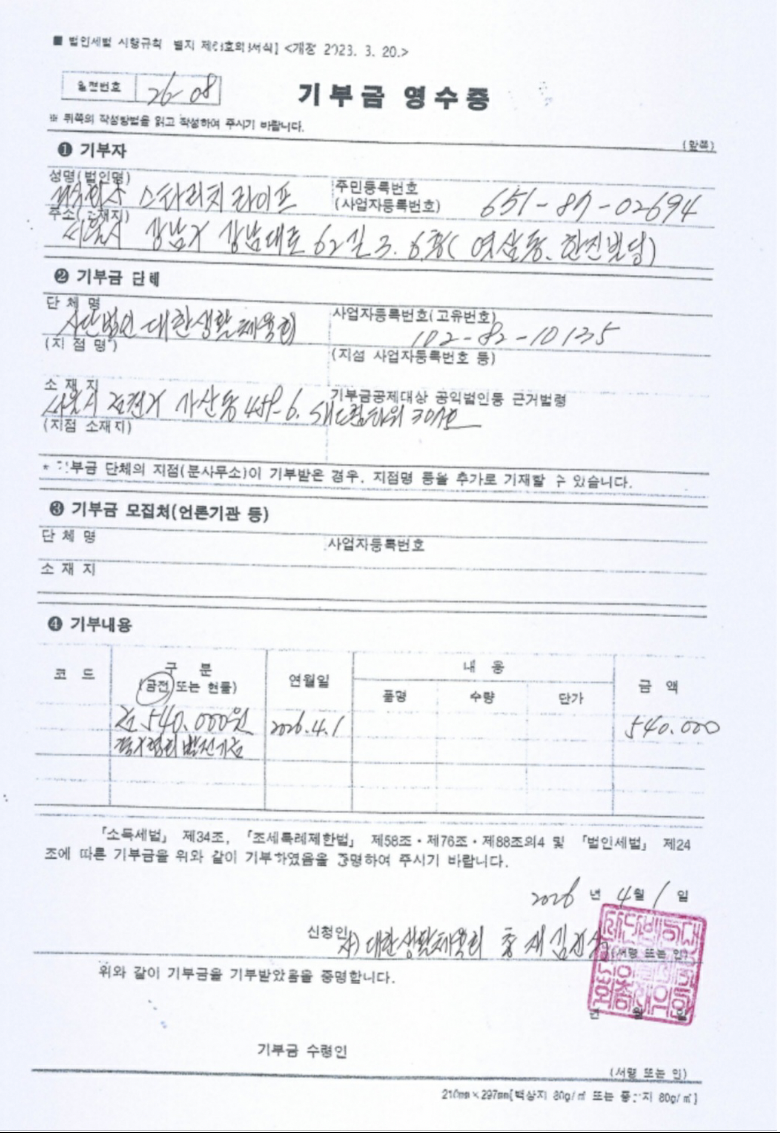 ■ 법인세법 시행규칙 별지 제63호의3서식] <개정 2023. 3. 20.>
일련번호 26-08
기부금 영수증
※ 뒤쪽의 작성방법을 읽고 작성하여 주시기 바랍니다.
(앞쪽)
❶ 기부자
성명(법인명) 주식회사 스타리치 라이프
주민등록번호
(사업자등록번호) 651-87-02694
주소(소재지)
서울시 강남구 강남대로 62길 3. 6층(역삼동, 한진빌딩)
❷ 기부금 단체
단 체 명 사단법인 대한생활체육회
사업자등록번호(고유번호)
102-82-10135
(지 점 명)
(지점 사업자등록번호 등)
소 재 지
기부금공제대상 공익법인등 근거법령
서울시 금천구 가산동 459-6. 301호
(지점 소재지)
* 기부금 단체의 지점(분사무소)이 기부받은 경우, 지점명 등을 추가로 기재할 수 있습니다.
❸ 기부금 모집처(언론기관 등)
단 체 명
사업자등록번호
소 재 지
❹ 기부내용
코 드
구 분
(금전 또는 현물)
연월일
내 용
품명
수량
단가
금 액
금 540.000원 2026.4.1 540.000
발전기금
「소득세법」 제34조, 「조세특례제한법」 제58조ㆍ제76조ㆍ제88조의4 및 「법인세법」 제24
조에 따른 기부금을 위와 같이 기부하였음을 증명하여 주시기 바랍니다.
2026 년 4월 1 일
신청인 사) 대한생활체육회 총재 김 (서명 또는 인)
위와 같이 기부금을 기부받았음을 증명합니다.
년 월 일
기부금 수령인
(서명 또는 인)
210mm×297mm[백상지 80g/㎡ 또는 중질지 80g/㎡]